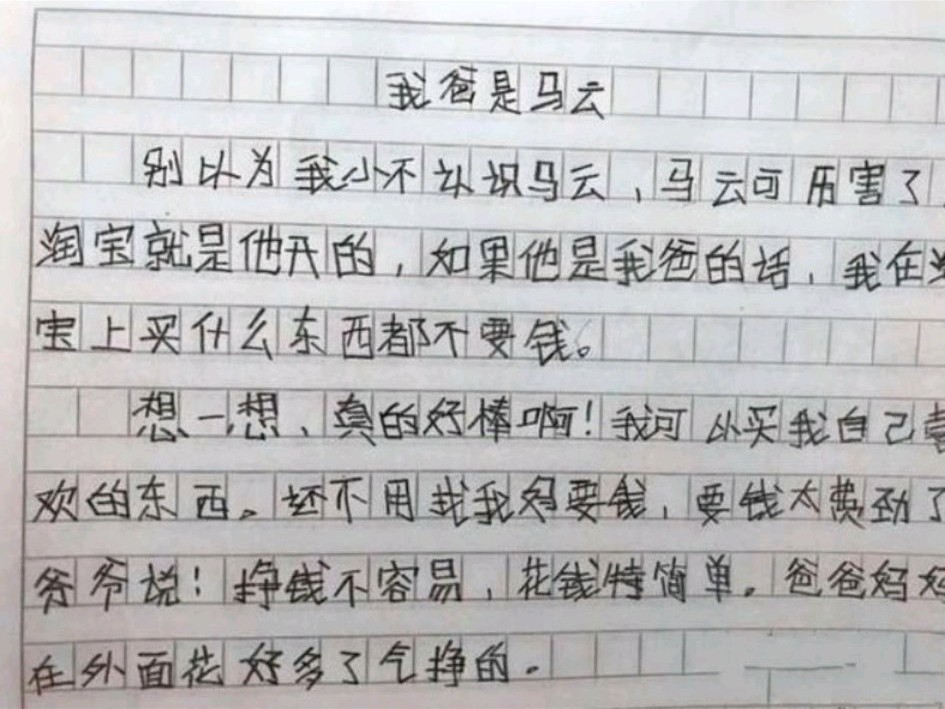 我爸是马云
别以为我小不认识马云，马云可历害了
淘宝就是他开的，如果他是我爸的话，我在淘
宝上买什么东西都不要钱。
想一想，真的好棒啊！我可以买我自己喜
欢的东西。还不用找我妈要钱，要钱太费劲了
爷爷说！挣钱不容易，花钱特简单。爸爸妈妈
在外面花好多了气挣的。